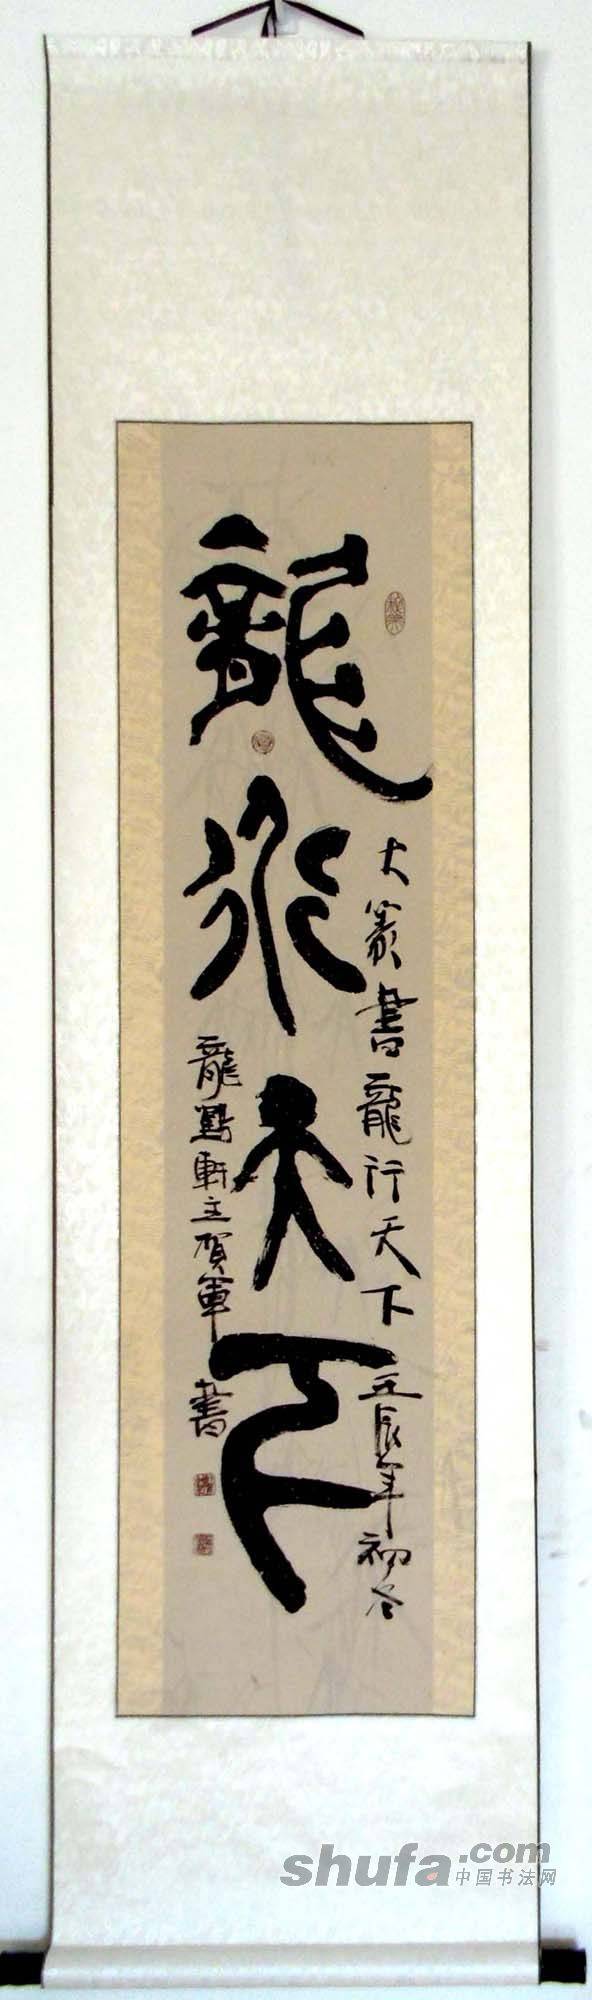 龍行天下
大篆書龍行天下 壬辰年初冬
龍點軒主賀軍書
shufa.com
中国书法网